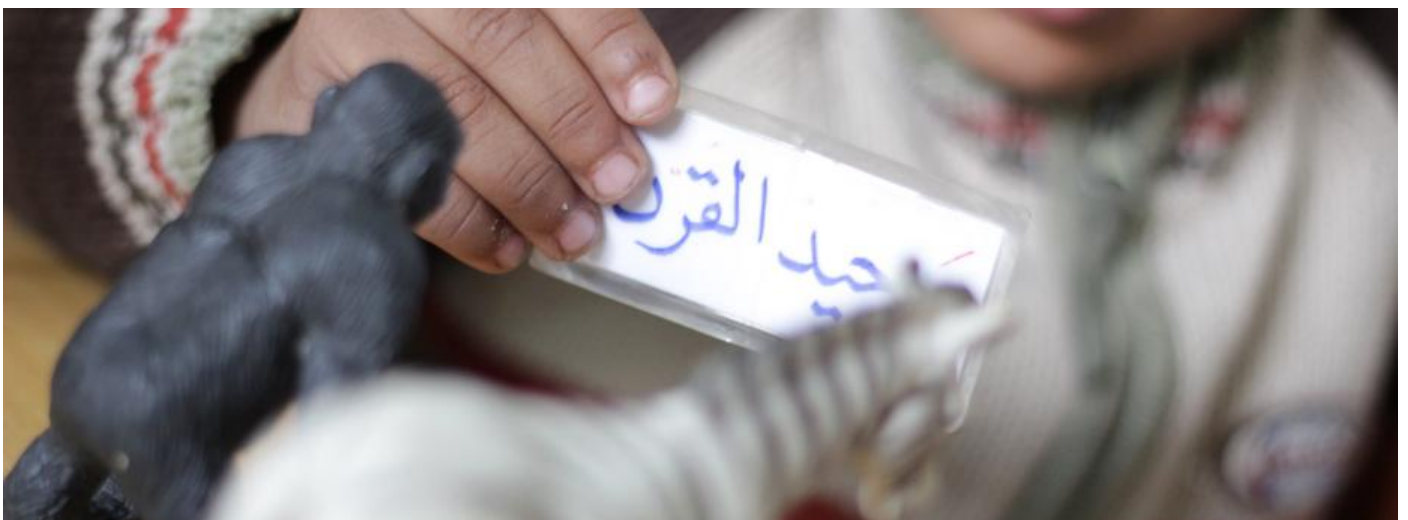 وَحيد القرن